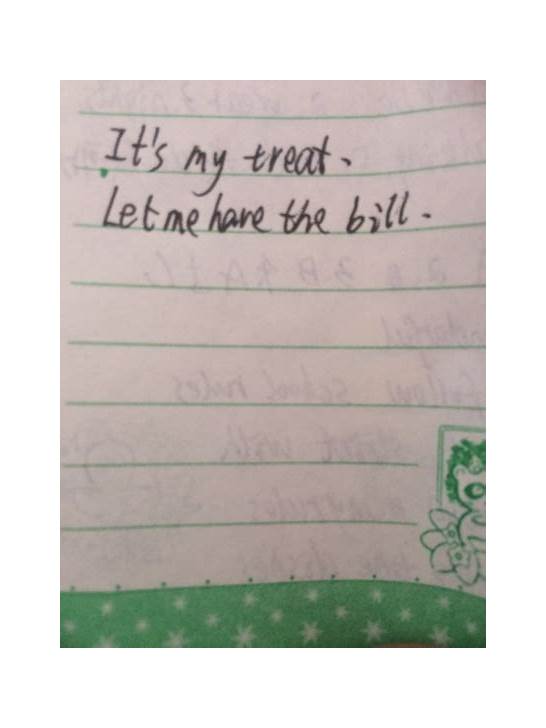 It's my treat.
Let me have the bill.